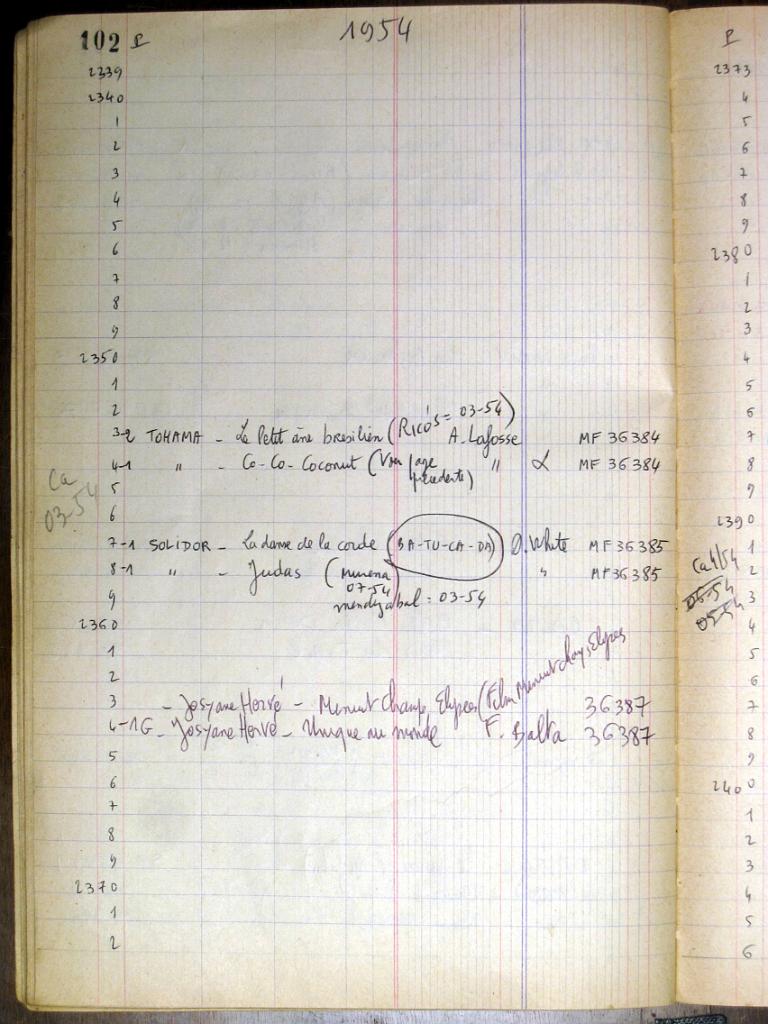 102 P 1954
2339
2340
1
2
3
4
5
6
7
8
9
2350
1
2
3-2 TOHAMA - Le Petit âne bresilien (RICO'S = 03-54) A. Lafosse MF 36384
4-1 " - Co-Co-Coconut (Voir page précédente) " α MF 36384
Ca 03-54
5
6
7-1 SOLIDOR - La danse de la corde (BA-TU-CA-DA) D. White MF 36385
8-1 " - Judas (Murena 07-54 " MF 36385
9 mendizabal : 03-54
2360
1
2
3 - Josyane Hervé - Minuit Champs Elysées (Film Minuit champs Elysées 36387
4-1G - Josyane Hervé - Unique au monde F. Balta 36387
5
6
7
8
9
2370
1
2
P
2373
4
5
6
7
8
9
2380
1
2
3
4
5
6
7
8
9
2390
1
Ca 4/54
2
05-54
3
05-54
4
5
6
7
8
9
2400
1
2
3
4
5
6